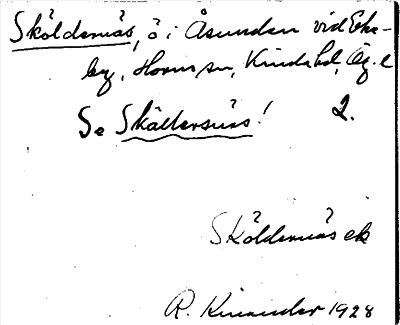 Sköldernäs, ö i Åsunden vid Eke-
by, Horns sn, Kinda hd, Ög. l
Se Skällersnäs! 2.
Sköldernäs ek
R. Kinander 1928